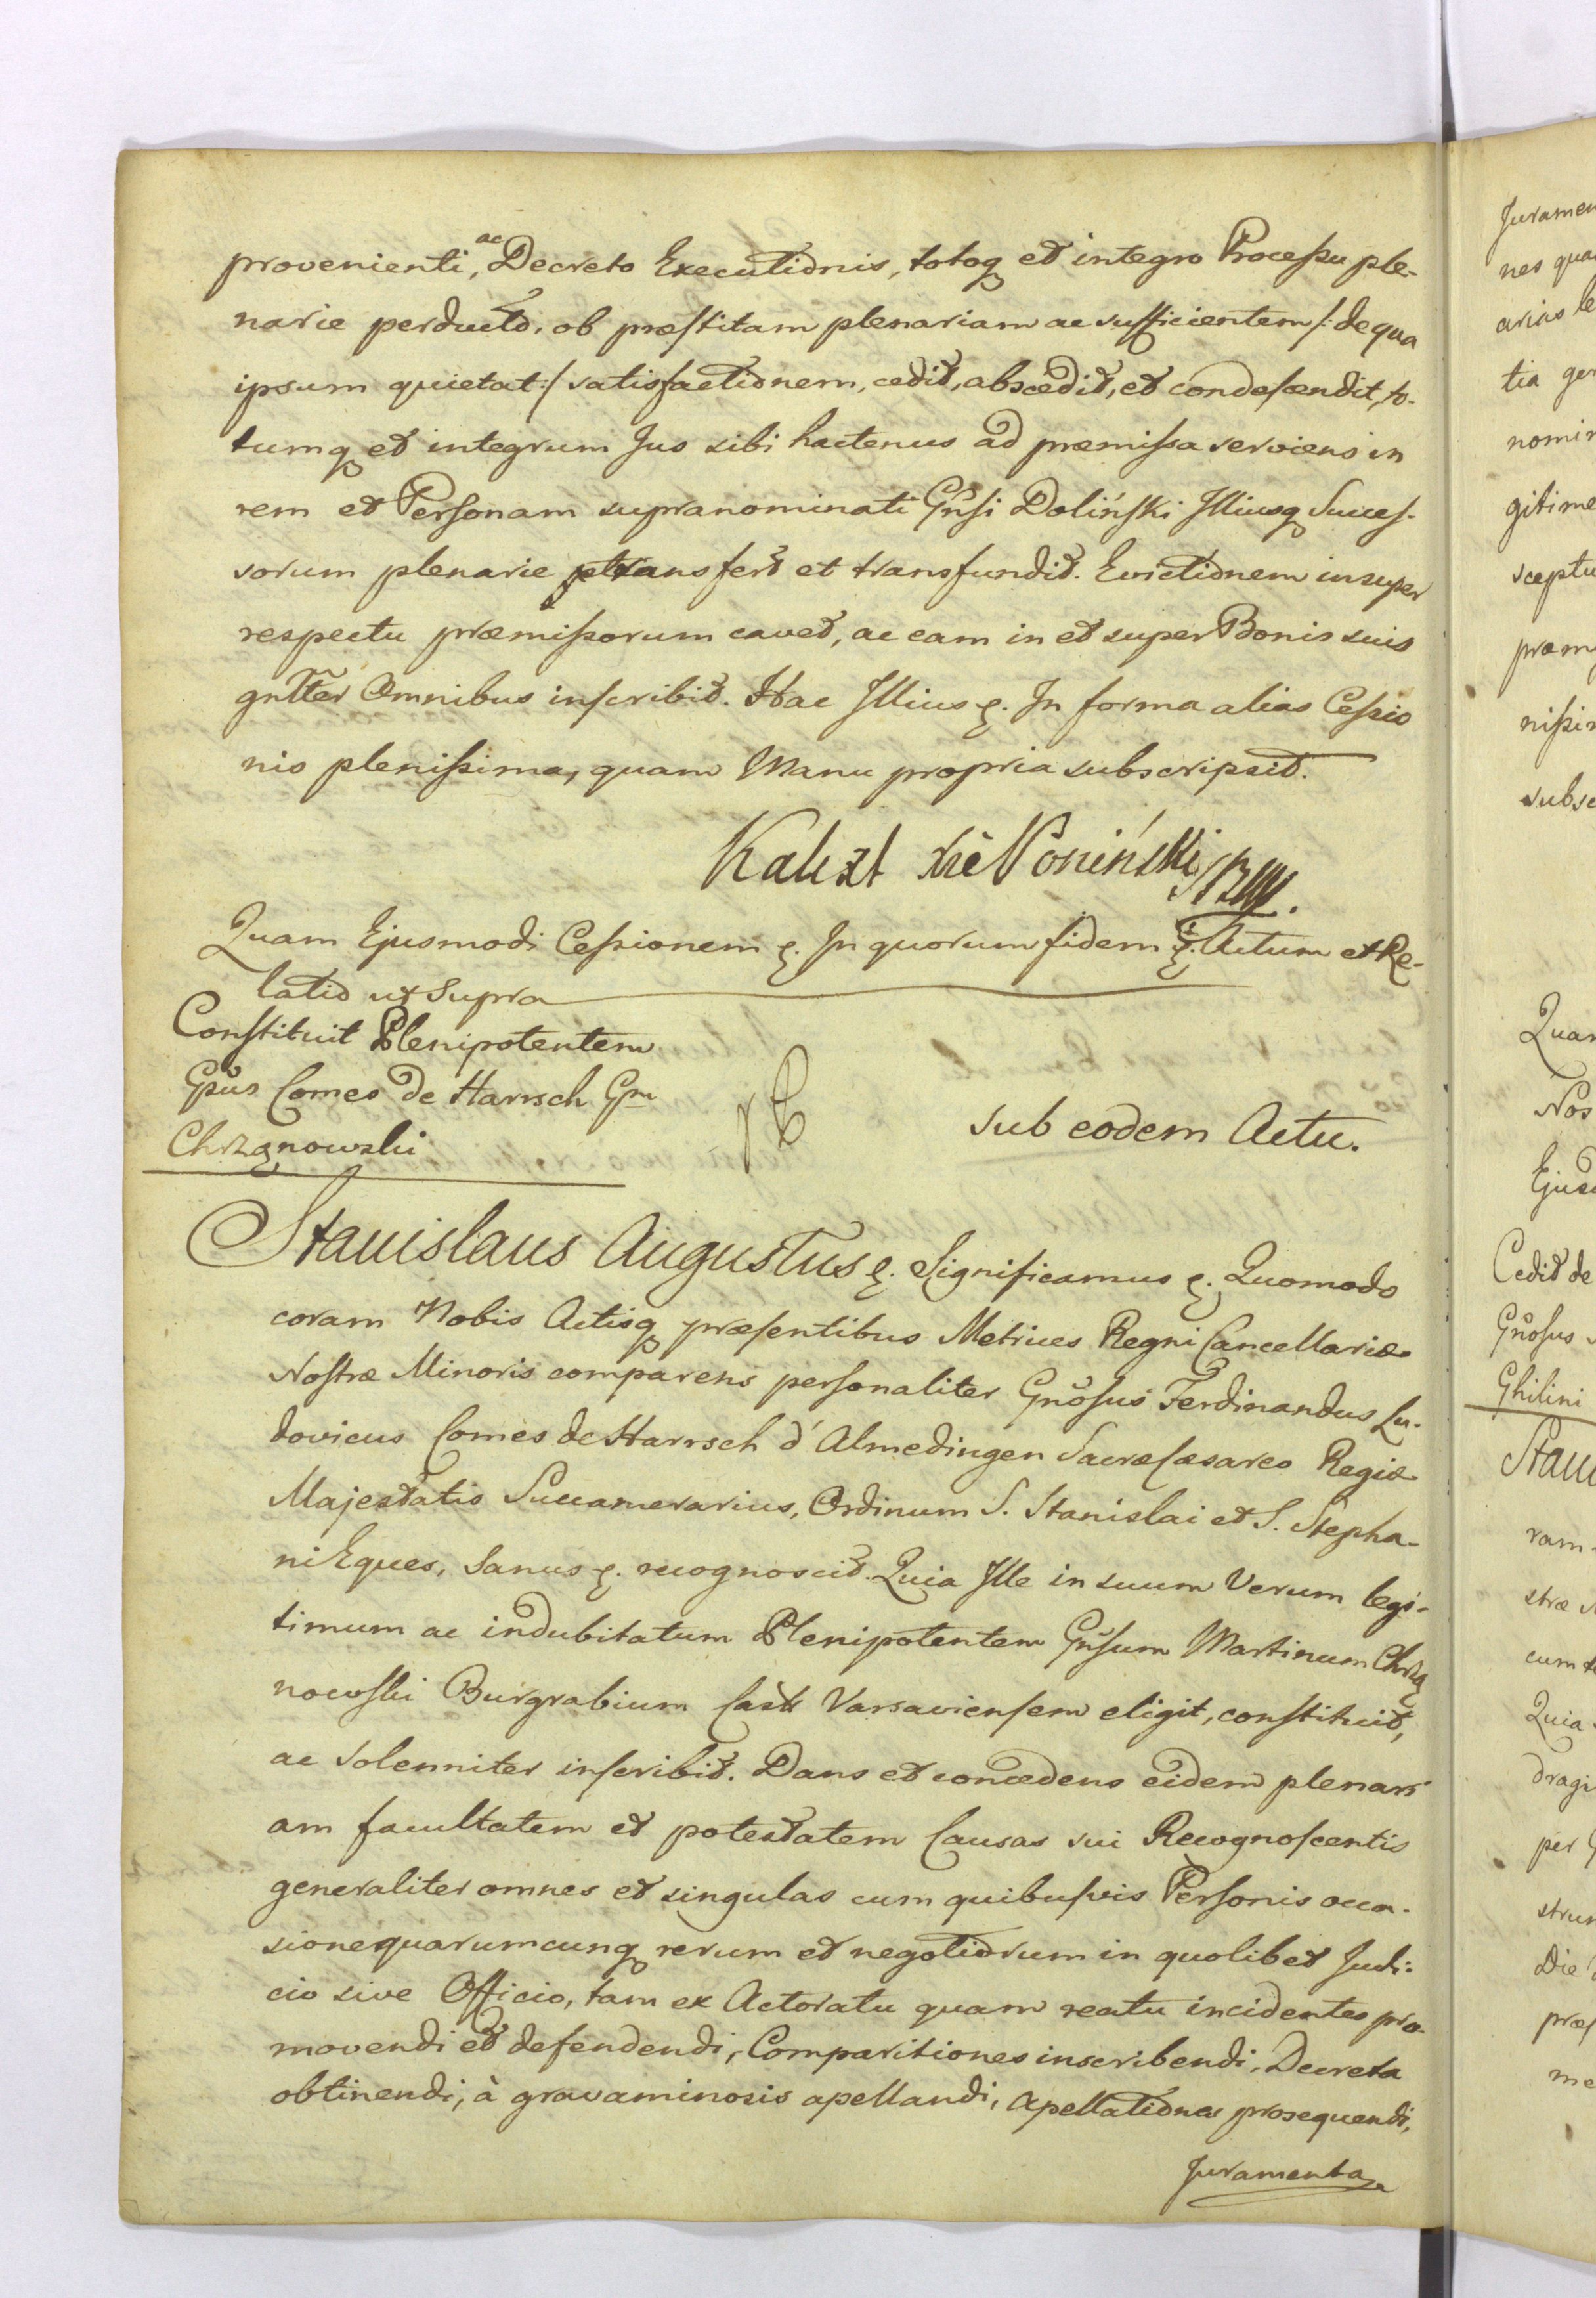 provenienti, ac Decreto Executionis, totoq et integro Processu ple-
narie perducto, ob præstitam plenariam ac sufficientem /: de qua
ipsum quietat :/ satisfactionem, cedit, abscedit, et condescendit, to-
tumq et integrum Jus sibi hactenus ad præmissa serviens in
rem et Personam supranominati Gnsi Doliński Illiusq Succes-
sorum plenarie transfert et transfundit. Evictionem insuper
respectu præmissorum cavet, ac eam in et super Bonis suis
gnlter Omnibus inscribit. Hac Illius &. In forma alias Cessio
nis plenissima, quam Manu propria subscripsit.
Kalixt xże Poniński
Quam Ejusmodi Cessionem &. In quorum fidem &. Actum et Re-
latio ut Supra
Constituit Plenipotentem
Gnsus Comes de Harrsch Gm
Chrzanowski
sub eodem Actu.
Stanislaus Augustus &. Significamus &. Quomodo
coram Nobis Actisq præsentibus Metrices Regni Cancellariæ
Nostræ Minoris comparens personaliter Gnosus Ferdinandus Lu-
dovicus Comes de Harrsch d'Almedingen Sacræ Cæsareo Regiæ
Majestatis Succamerarius, Ordinum S. Stanislai et S. Stepha-
ni Eques, Sanus &. recognoscit. Quia Ille in suum Verum legi-
timum ac indubitatum Plenipotentem Gnsum Martinum Chrzą
nowski Burgrabium Castr Varsaviensem eligit, constituit,
ac Solenniter inscribit. Dans et concedens eidem plenari
am facultatem et potestatem Causas sui Recognoscentis
generaliter omnes et singulas cum quibusvis Personis occa-
sione quarumcunq rerum et negotiorum in quolibet Judi-
cio sive Officio, tam ex Actoratu quam reatu incidentes pro-
movendi et defendendi, Comparitiones inscribendi, Decreta
obtinendi, à gravaminosis apellandi, apellationes prosequendi,
Juramenta
Juramen
nes qua
arias le
tia gen
nomin
gitime
sceptu
præm
nissim
subsc
Quam
Nos
Ejusd
Cedit de
Gnosus
Ghilini
Stani
ram
stræ
cum
Quia
dragi
per
strum
Die
præs
me